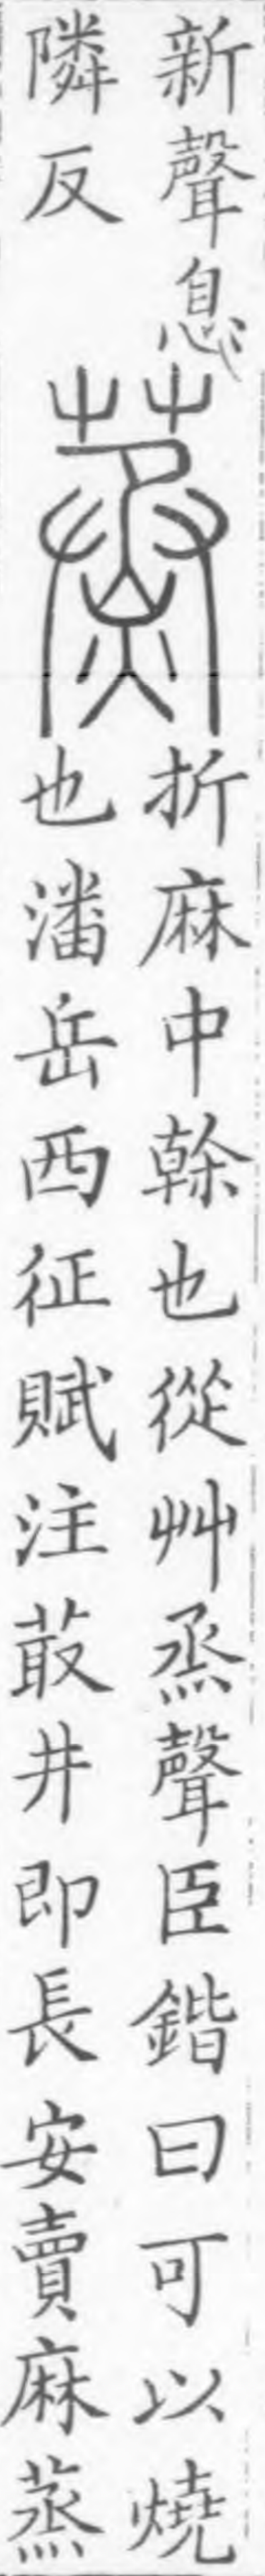 新聲息
隣反
蒸
折麻中榦也從艸烝聲臣鍇曰可以燒
也潘岳西征賦注菆井即長安賣麻蒸